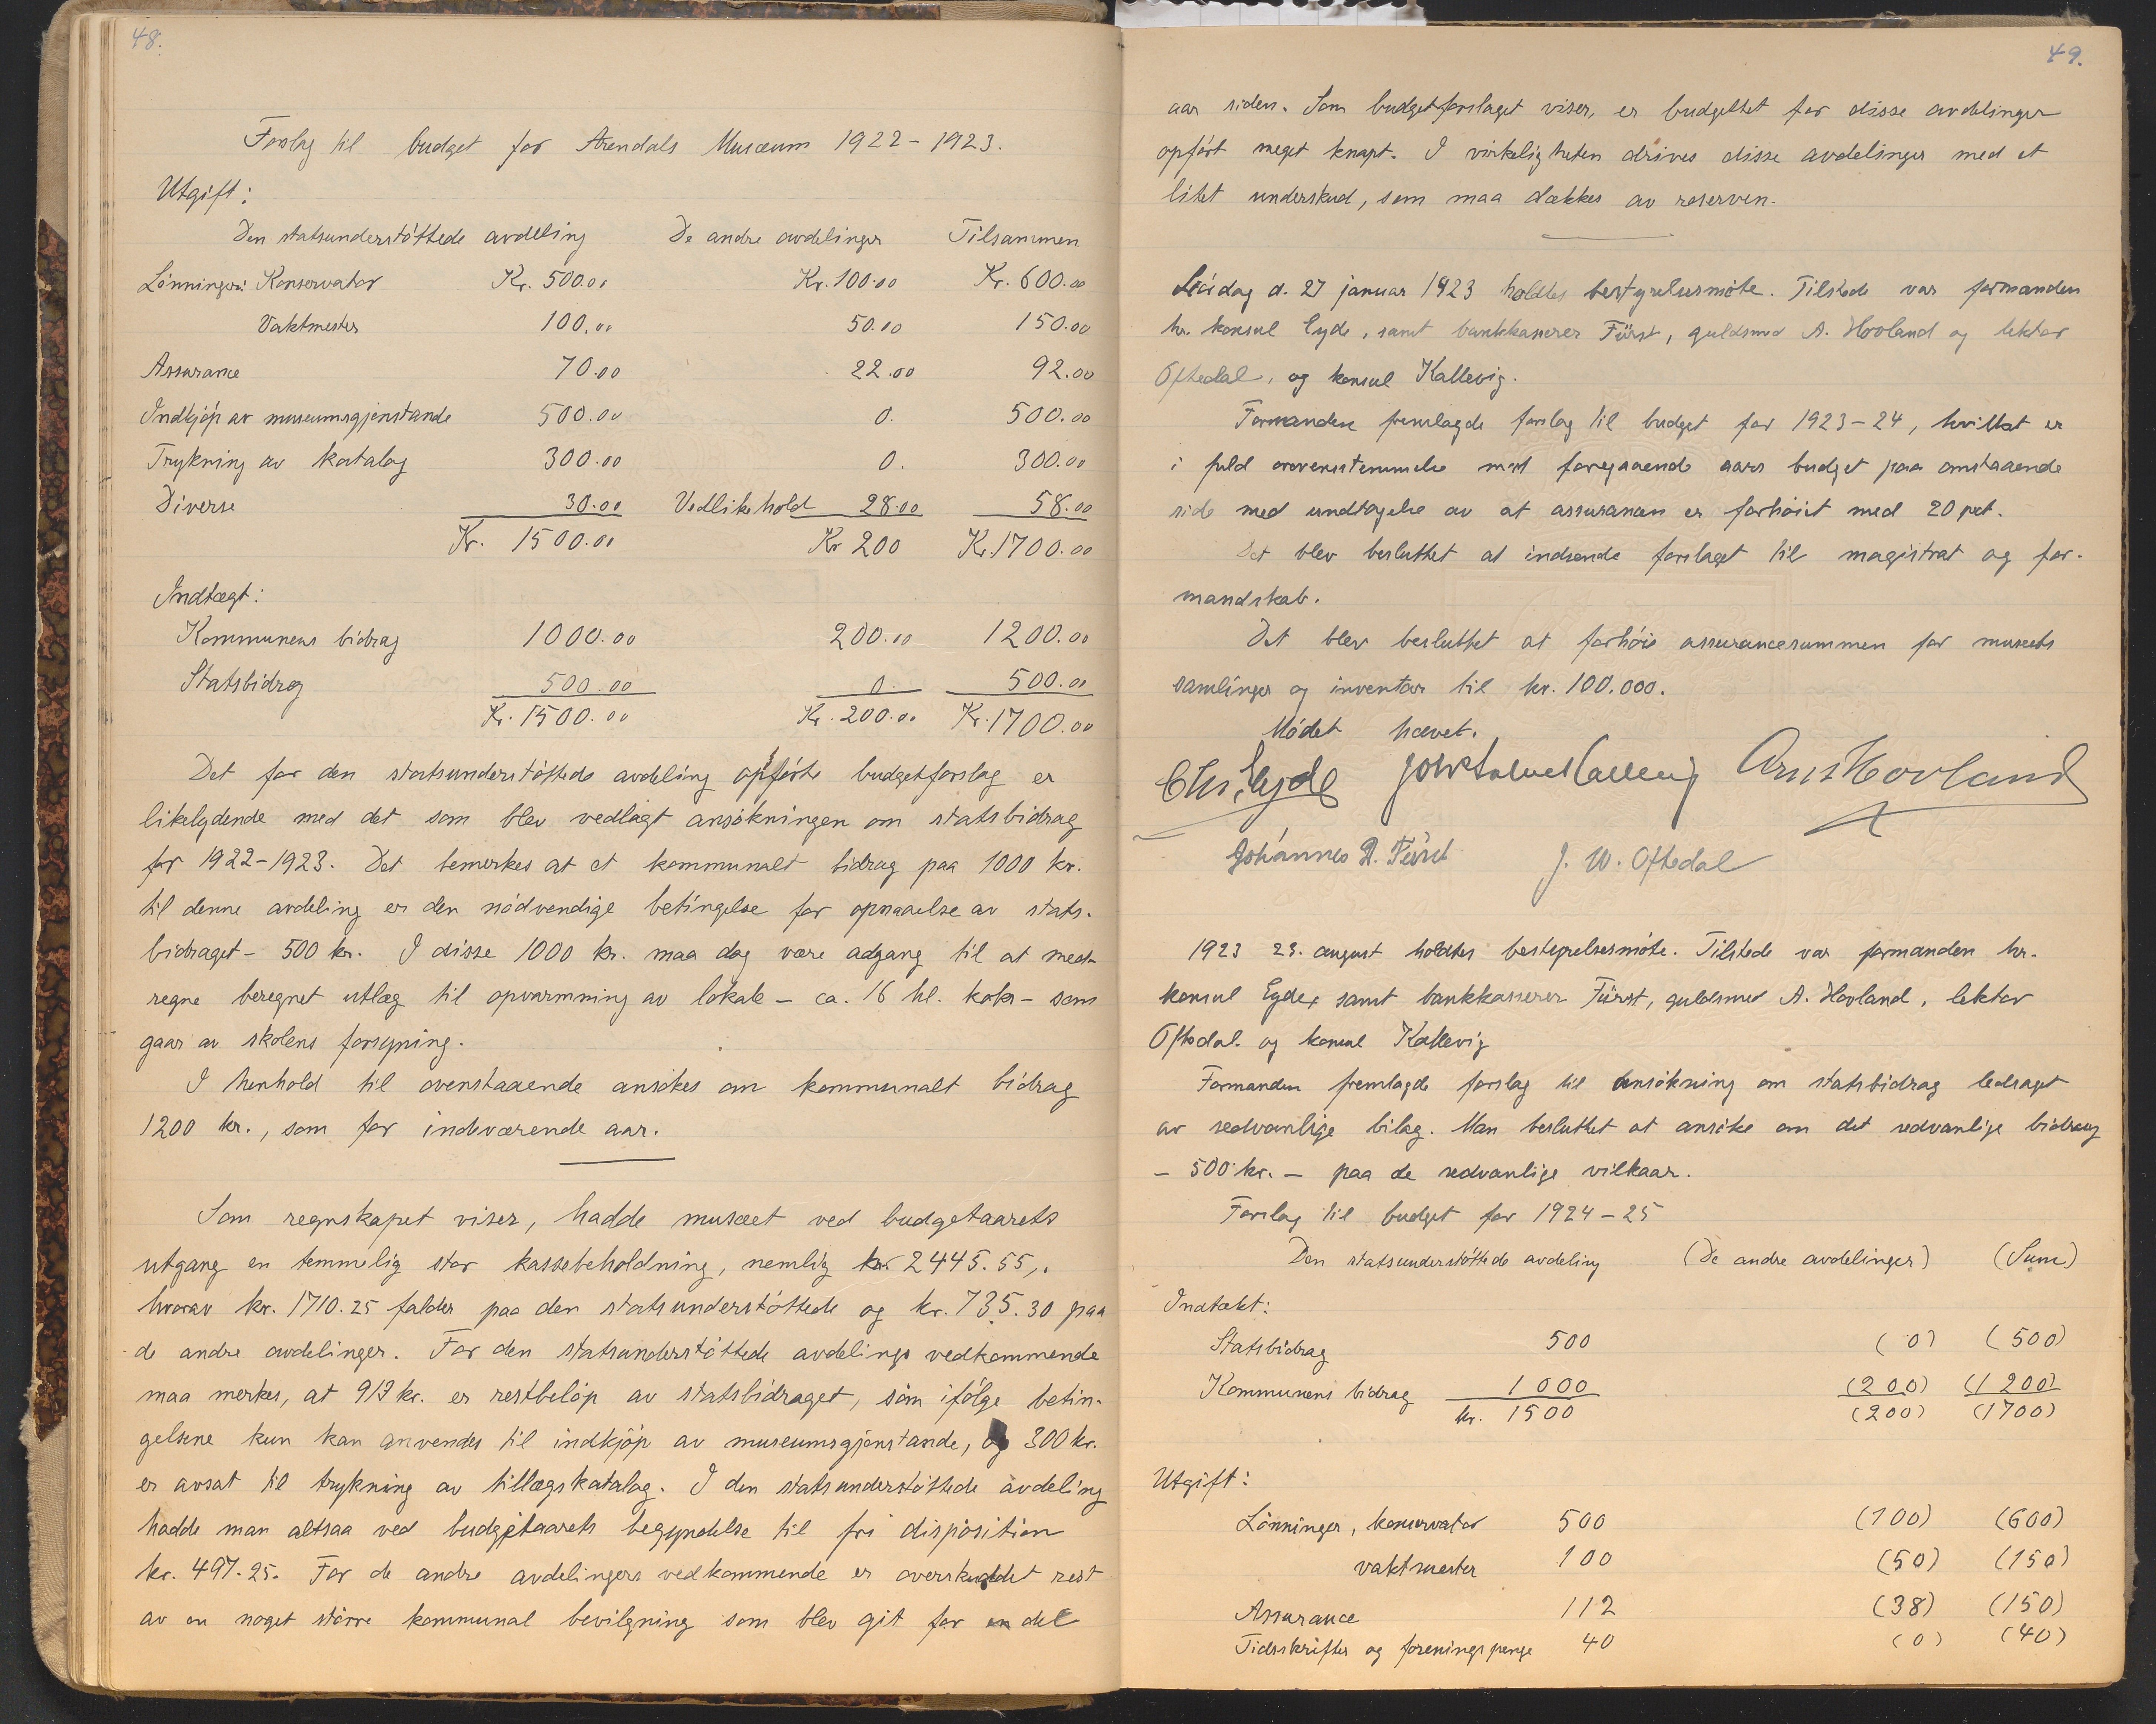 48.
Forslag til budget for Arendals Musæum 1922-1923.
Utgift:
Den statsunderstøttede avdeling De andre avdelinger Tilsammen
Lönninger: Konservator Kr. 500.00 Kr. 100.00 Kr. 600.00
Vaktmester 100.00 50.00 150.00
Assurance 70.00 22.00 92.00
Indkjøp av museumsgjenstande 500.00 0. 500.00
Trykning av katalog 300.00 0. 300.00
Diverse 30.00 Vedlikehold 28.00 58.00
Kr. 1500.00 Kr 200 Kr. 1700.00
Indtægt:
Kommunens bidrag 1000.00 200.00 1200.00
Statsbidrag 500.00 0. 500.00
Kr. 1500.00 Kr. 200.00 Kr. 1700.00
Det for den statsunderstøttede avdeling opførte budgetforslag er
likelydende med det som blev vedlagt ansøkningen om statsbidrag
for 1922-1923. Det bemerkes at et kommunalt bidrag paa 1000 kr.
til denne avdeling er den nødvendige betingelse for opnaaelse av stats-
bidraget - 500 kr. I disse 1000 kr. maa dog være adgang til at med-
regne beregnet utlæg til opvarmning av lokale - ca. 16 hl. koks - som
gaar av skolens forsyning.
I henhold til ovenstaaende ansøkes om kommunalt bidrag
1200 kr., som for indeværende aar.
Som regnskapet viser, hadde musæet ved budgetaarets
utgang en temmelig stor kassebeholdning, nemlig kr. 2445.55,
hvorav kr. 1710.25 falder paa den statsunderstøttede og kr. 735.30 paa
de andre avdelinger. For den statsunderstøttede avdelings vedkommende
maa merkes, at 913 kr. er restbeløp av statsbidraget, som ifølge betin-
gelsene kun kan anvendes til indkjøp av museumsgjenstande, og 300 kr.
er avsat til trykning av tillægskatalog. I den statsunderstøttede avdeling
hadde man altsaa ved budgetaarets begyndelse til fri disposition
kr. 497.25. For de andre avdelingers vedkommende er overskuddet rest
av en noget større kommunal bevilgning som blev git for en del
49.
aar siden. Som budgetforslaget viser, er budgettet for disse avdelinger
opført meget knapt. I virkeligheten drives disse avdelinger med et
litet underskud, som maa dækkes av reserven.
Lördag d. 27 januar 1923 holdtes bestyrelsesmøte. Tilstede var formanden
hr. konsul Eyde, samt bankkasserer Fürst, guldsmed A. Hovland og lektor
Oftedal, og konsul Kallevig.
Formanden fremlagde forslag til budget for 1923-24, hvilket er
i fuld overensstemmelse med foregaaende aars budget paa omstaaende
side med undtagelse av at assurancen er forhøiet med 20 pct.
Det blev besluttet at indsende forslaget til magistrat og for-
mandskab.
Det blev besluttet at forhøie assurancesummen for museets
samlinger og inventar til kr. 100.000.
Mødet hævet.
Chr. Eyde Kallevig Arns Hovland
Johannes R. Fürst J. W. Oftedal
1923 23. august holdtes bestyrelsesmøte. Tilstede var formanden hr.
konsul Eyde, samt bankkasserer Fürst, guldsmed A. Hovland, lektor
Oftedal og konsul Kallevig
Formanden fremlagde forslag til ansøkning om statsbidrag ledsaget
av sedvanlige bilag. Man besluttet at ansøke om det sedvanlige bidrag
- 500 kr. - paa de sedvanlige vilkaar.
Forslag til budget for 1924-25
Den statsunderstøttede avdeling (De andre avdelinger) (Sum)
Indtækt:
Statsbidrag 500 (0) (500)
Kommunens bidrag 1000 (200) (1200)
kr. 1500 (200) (1700)
Utgift:
Lönninger, konservator 500 (100) (600)
vaktmester 100 (50) (150)
Assurance 112 (38) (150)
Tidsskrifter og foreningspenge 40 (0) (40)